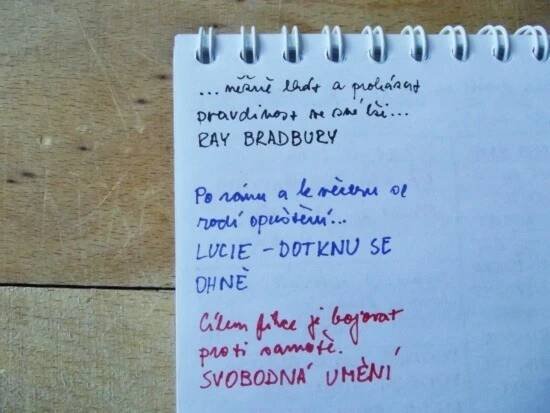 ... něžně lhát a prokázat
pravdivost ve své lži...
RAY BRADBURY
Po ránu a k večeru se
rodí opuštění...
LUCIE - DOTKNU SE
OHNĚ
Cílem fikce je bojovat
proti samotě.
SVOBODNÁ UMĚNÍ